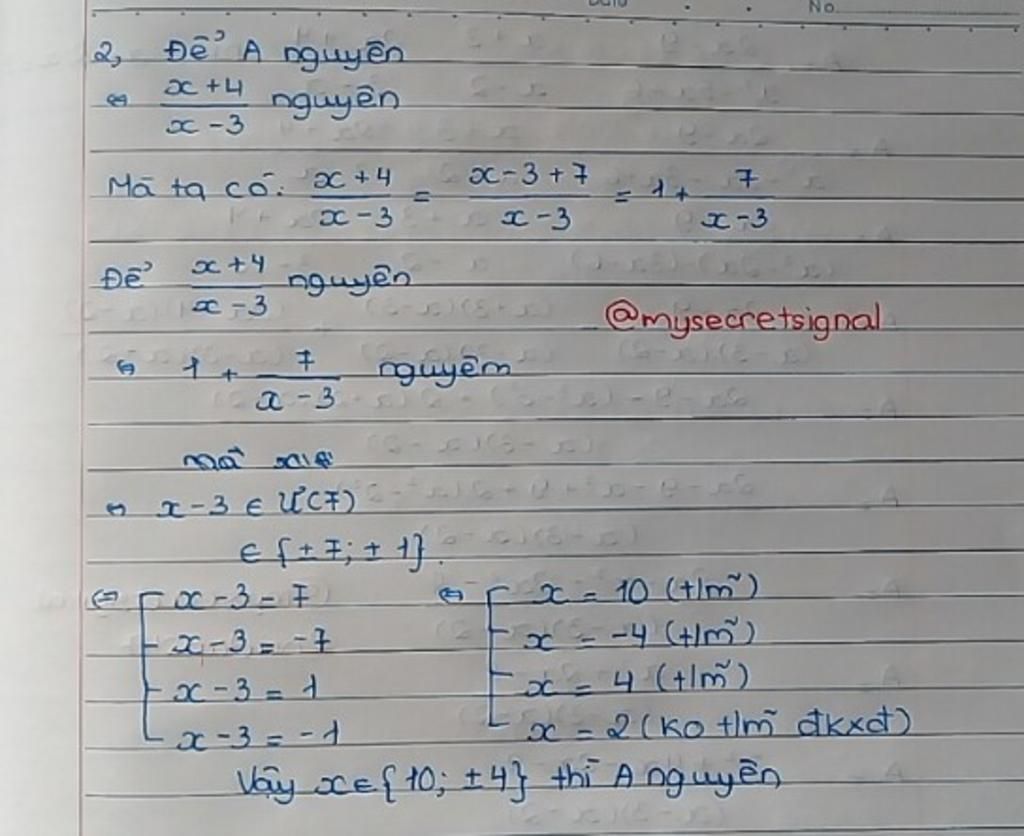 No.
2, Để A nguyên
⇔ x+4/x-3 nguyên
Mà ta có: x+4/x-3 = x-3+7/x-3 = 1 + 7/x-3
Để x+4/x-3 nguyên
@mysecretsignal
⇔ 1 + 7/x-3 nguyên
mà
⇔ x-3 ∈ Ư(7)
∈ {±7; ±1}.
⇔ [ x-3 = 7 ⇔ [ x = 10 (t/m)
x-3 = -7 x = -4 (t/m)
x-3 = 1 x = 4 (t/m)
x-3 = -1 x = 2 (ko t/m đkxđ)
Vậy x∈{10; ±4} thì A nguyên